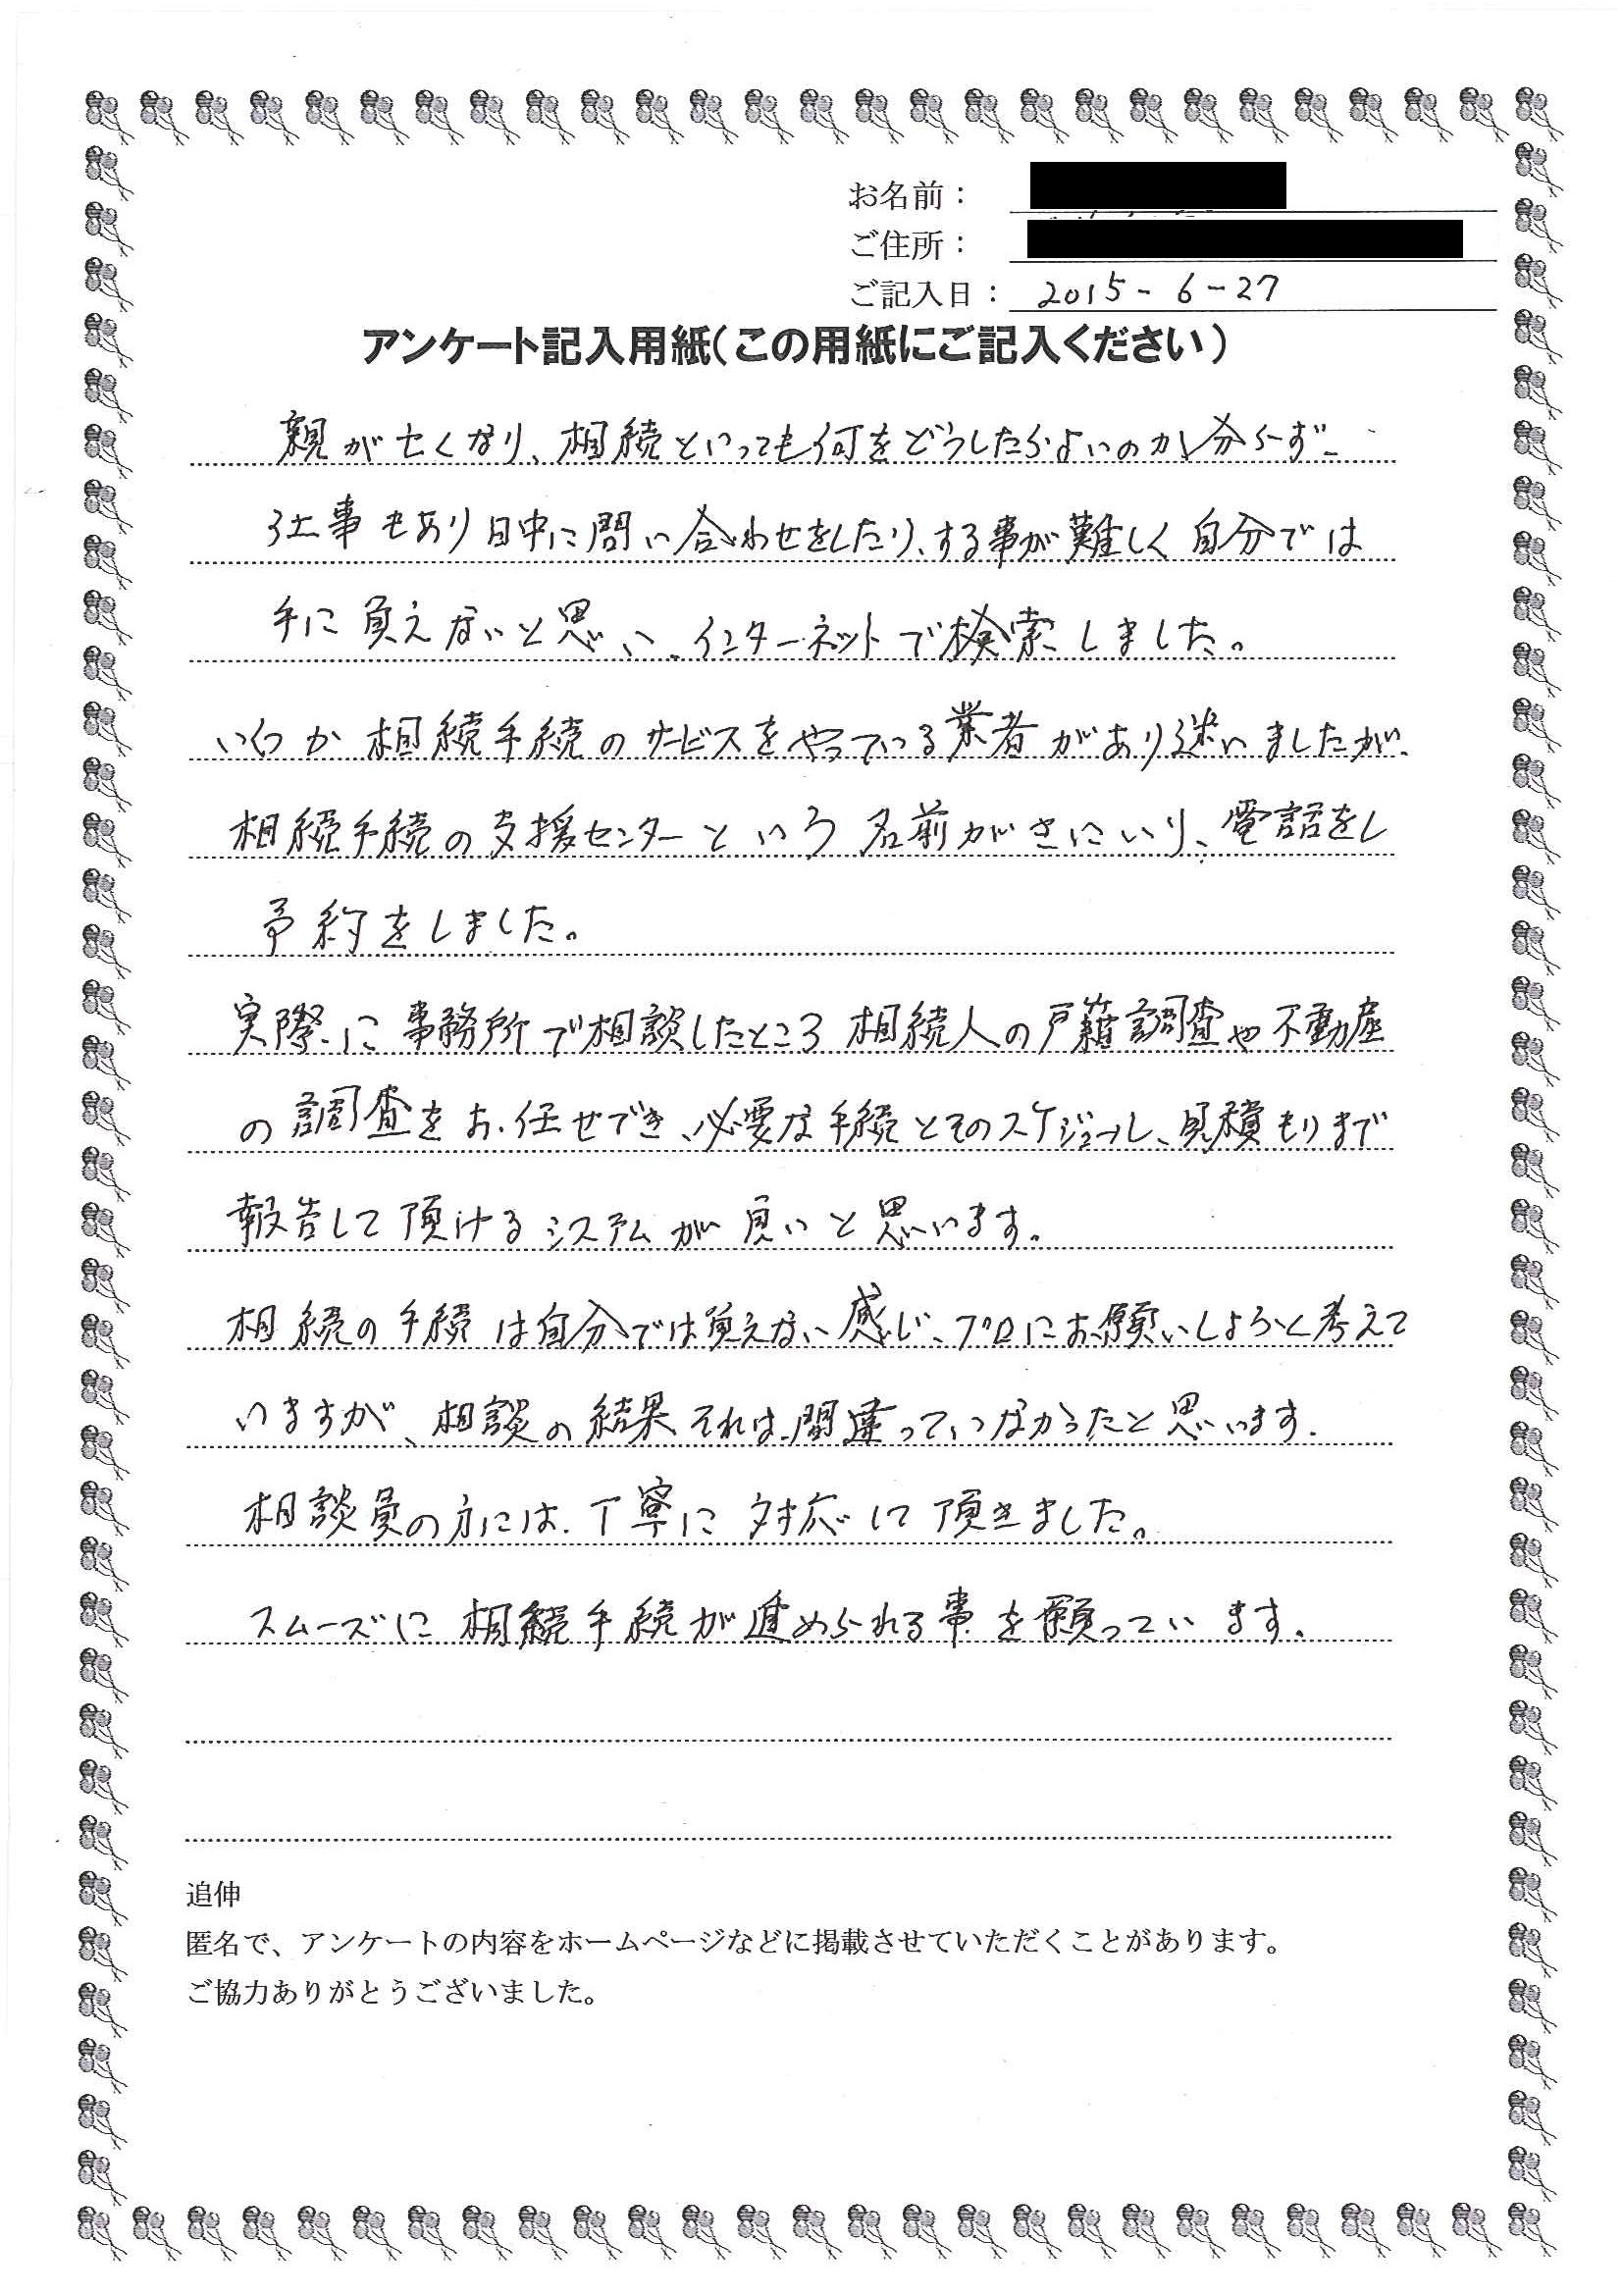 お名前：
ご住所：
ご記入日： 2015-6-27
アンケート記入用紙（この用紙にご記入ください）
親が亡くなり、相続といっても何をどうしたらよいのか分らず、
仕事もあり日中に問い合わせをしたり、する事が難しく自分では
手に負えないと思い、インターネットで検索しました。
いくつか相続手続のサービスをやっている業者があり迷いましたが、
相続手続の支援センターという名前がきにいり、電話をし
予約をしました。
実際に事務所で相談したところ相続人の戸籍調査や不動産
の調査をお任せでき、必要な手続とそのスケジュール、見積もりまで
報告して頂けるシステムが良いと思います。
相続の手続は自分では負えない感じ、プロにお願いしようと考えて
いますが、相談の結果それは間違っていなかったと思います。
相談員の方には、丁寧に対応して頂きました。
スムーズに相続手続が進められる事を願っています。
追伸
匿名で、アンケートの内容をホームページなどに掲載させていただくことがあります。
ご協力ありがとうございました。